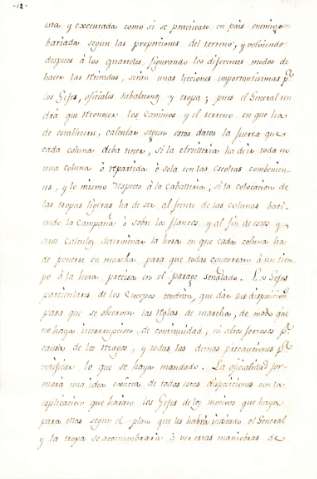 -12-
esta, y executada como si se practicase en país enemigo
variadas segun las proporciones del terreno, y volviendo
despues à los quarteles figurando los diferentes modos de
hacer las retiradas, serán unas lecciones importantisimas pª
los Gefes, oficiales subalternos y tropa; pues el General un
dia que reconoce los caminos y el terreno, en que ha
de establecerse, calcular segun estos datos la fuerza que
cada coluna deba tener, si la artilleria ha de ir toda en
una coluna ò repartida ò sola con las escoltas combenien
tes, y lo mismo respecto à la caballeria, si la colocacion de
las tropas ligeras ha de ser al frente de las colunas
la campaña ò sobre los flancos y al fin de estos y
otros calculos determinar la hora en que cada coluna ha
de ponerse en marcha para que todas concurran à un tiem
po à la hora precisa en el parage señalado. Los Gefes
particulares de los Cuerpos tendrán, que dar sus disposicion
para que se observen las reglas de marcha, de modo que
no haya interrupcion, de continuidad, ni otros
de los riesgos, y todas las demas precauciones pª
verificar lo que se haya mandado. La oficialidad for
mará una idea exacta de todas estas disposiciones con la
explicacion que harán los Gefes de los motivos que haya
para ellas segun el plan que les habrá indicado el General
y la tropa se acostumbrará à ver estas maniobras de